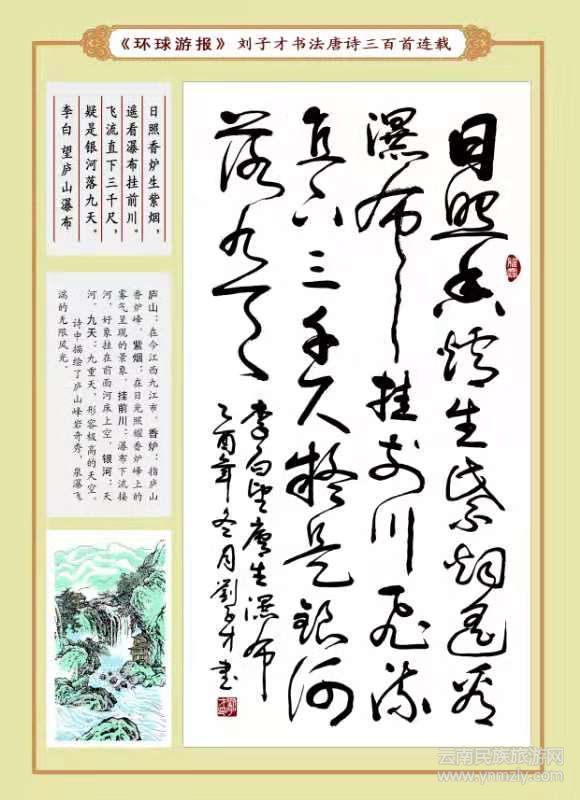 《环球游报》刘子才书法唐诗三百首连载
日照香炉生紫烟遥看
瀑布挂前川飞流
直下三千尺疑是銀河
落九天
李白望廬山瀑布
乙酉年冬月劉子才书
日照香炉生紫烟，
遥看瀑布挂前川。
飞流直下三千尺，
疑是银河落九天。
李白 望庐山瀑布
庐山：在今江西九江市，香炉：指庐山
香炉峰，紫烟：在日光照耀香炉峰上的
雾气呈现的景象，挂前川：瀑布下流接
河，好象挂在前面河床上空，银河：天
河，九天：九重天，形容极高的天空。
诗中描绘了庐山峰岩奇秀，泉瀑飞
湍的无限风光。
云南民族旅游网
www.ynmzly.com